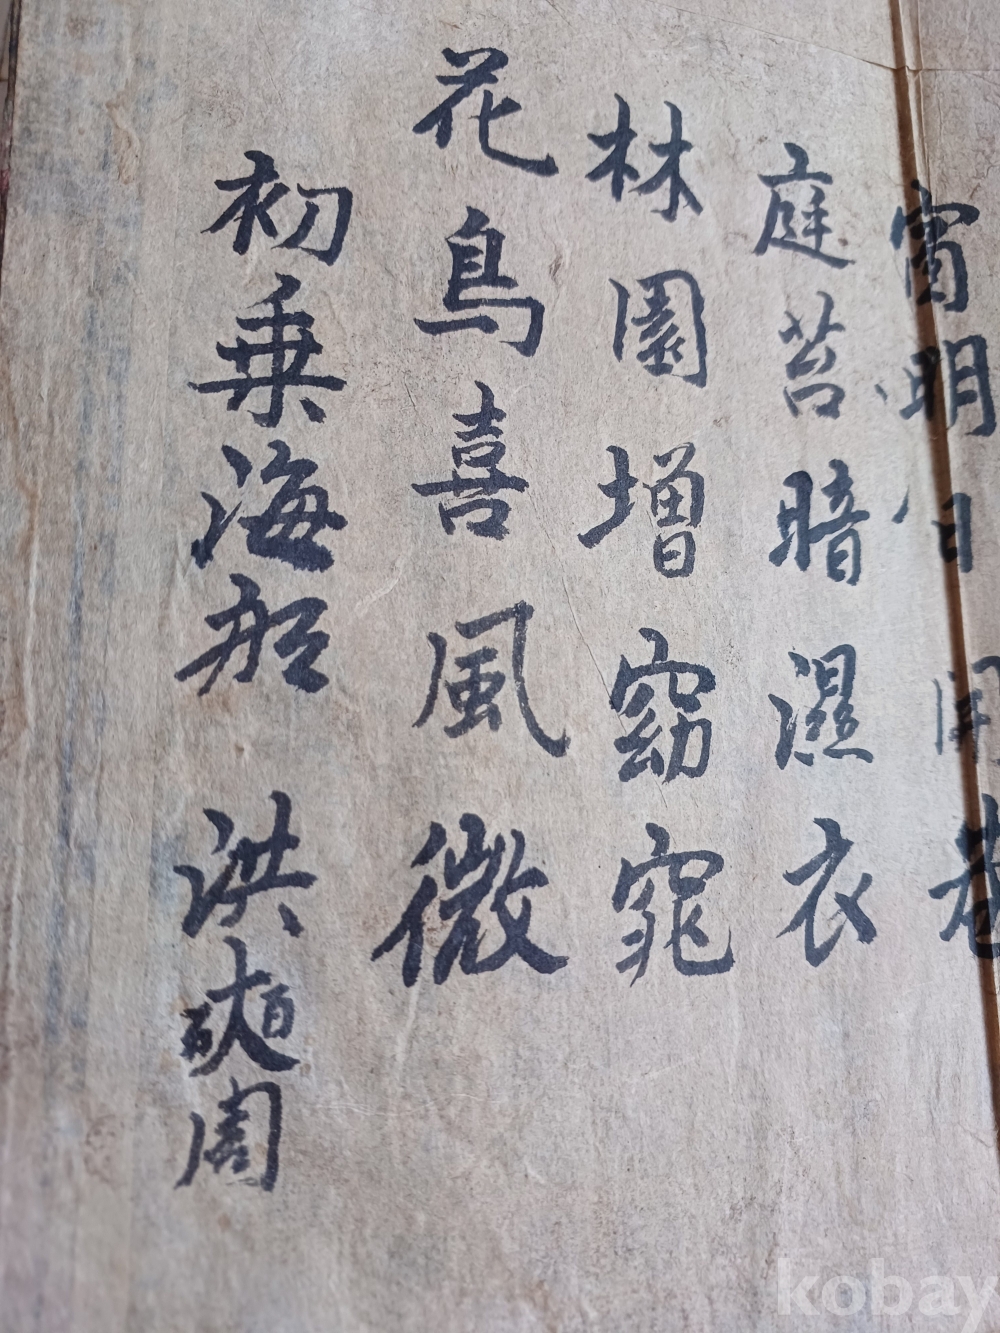 窗明
庭苔暗濕衣
林園增窈窕
花鳥喜風微
初乘海船 洪奭周
kobay